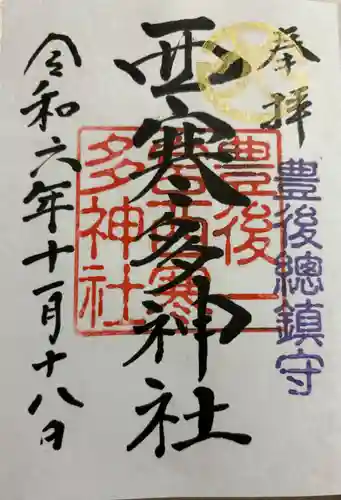 奉拝
豊後總鎮守
西寒多神社
豊後一宮西寒多神社
令和六年十一月十八日